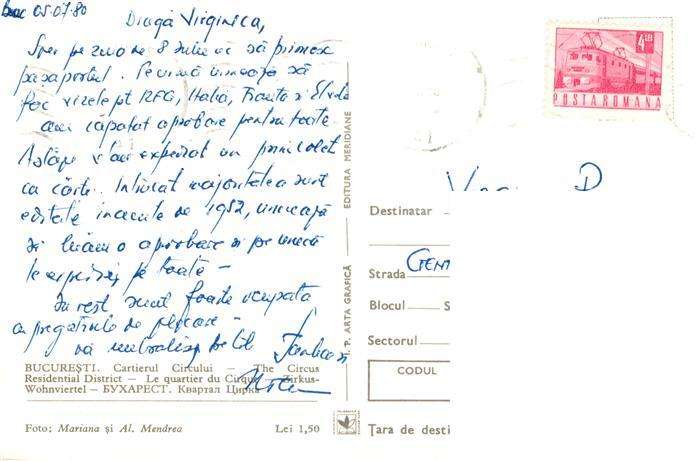 Buc 05.07.80
Dragă Virginica,
Sper pe ziua de 8 Iulie a.c. să primesc
pașaportul. Pe urmă urmează să
fac vizele pt RFG, Italia, Franta și
am căpătat aprobare pentru toate
v-am expediat un pachet
cu cărți. Întrucât majoritatea sunt
editate înainte de 1952, urmează
să luăm o aprobare și pe urmă
le expediez pe toate —
În rest sunt foarte ocupată
cu pregătirile de plecare —
vă
BUCUREȘTI. Cartierul Circului — The Circus
Residential District — Le quartier du Cirque — Zirkus-
Wohnviertel — БУХАРЕСТ. Квартал Цирка
Foto: Mariana și Al. Mendrea
Lei 1,50
I. P. ARTA GRAFICĂ EDITURA MERIDIANE
4 LEI
POSTA ROMANA
Destinatar
Strada
Blocul S
Sectorul
CODUL
Țara de desti